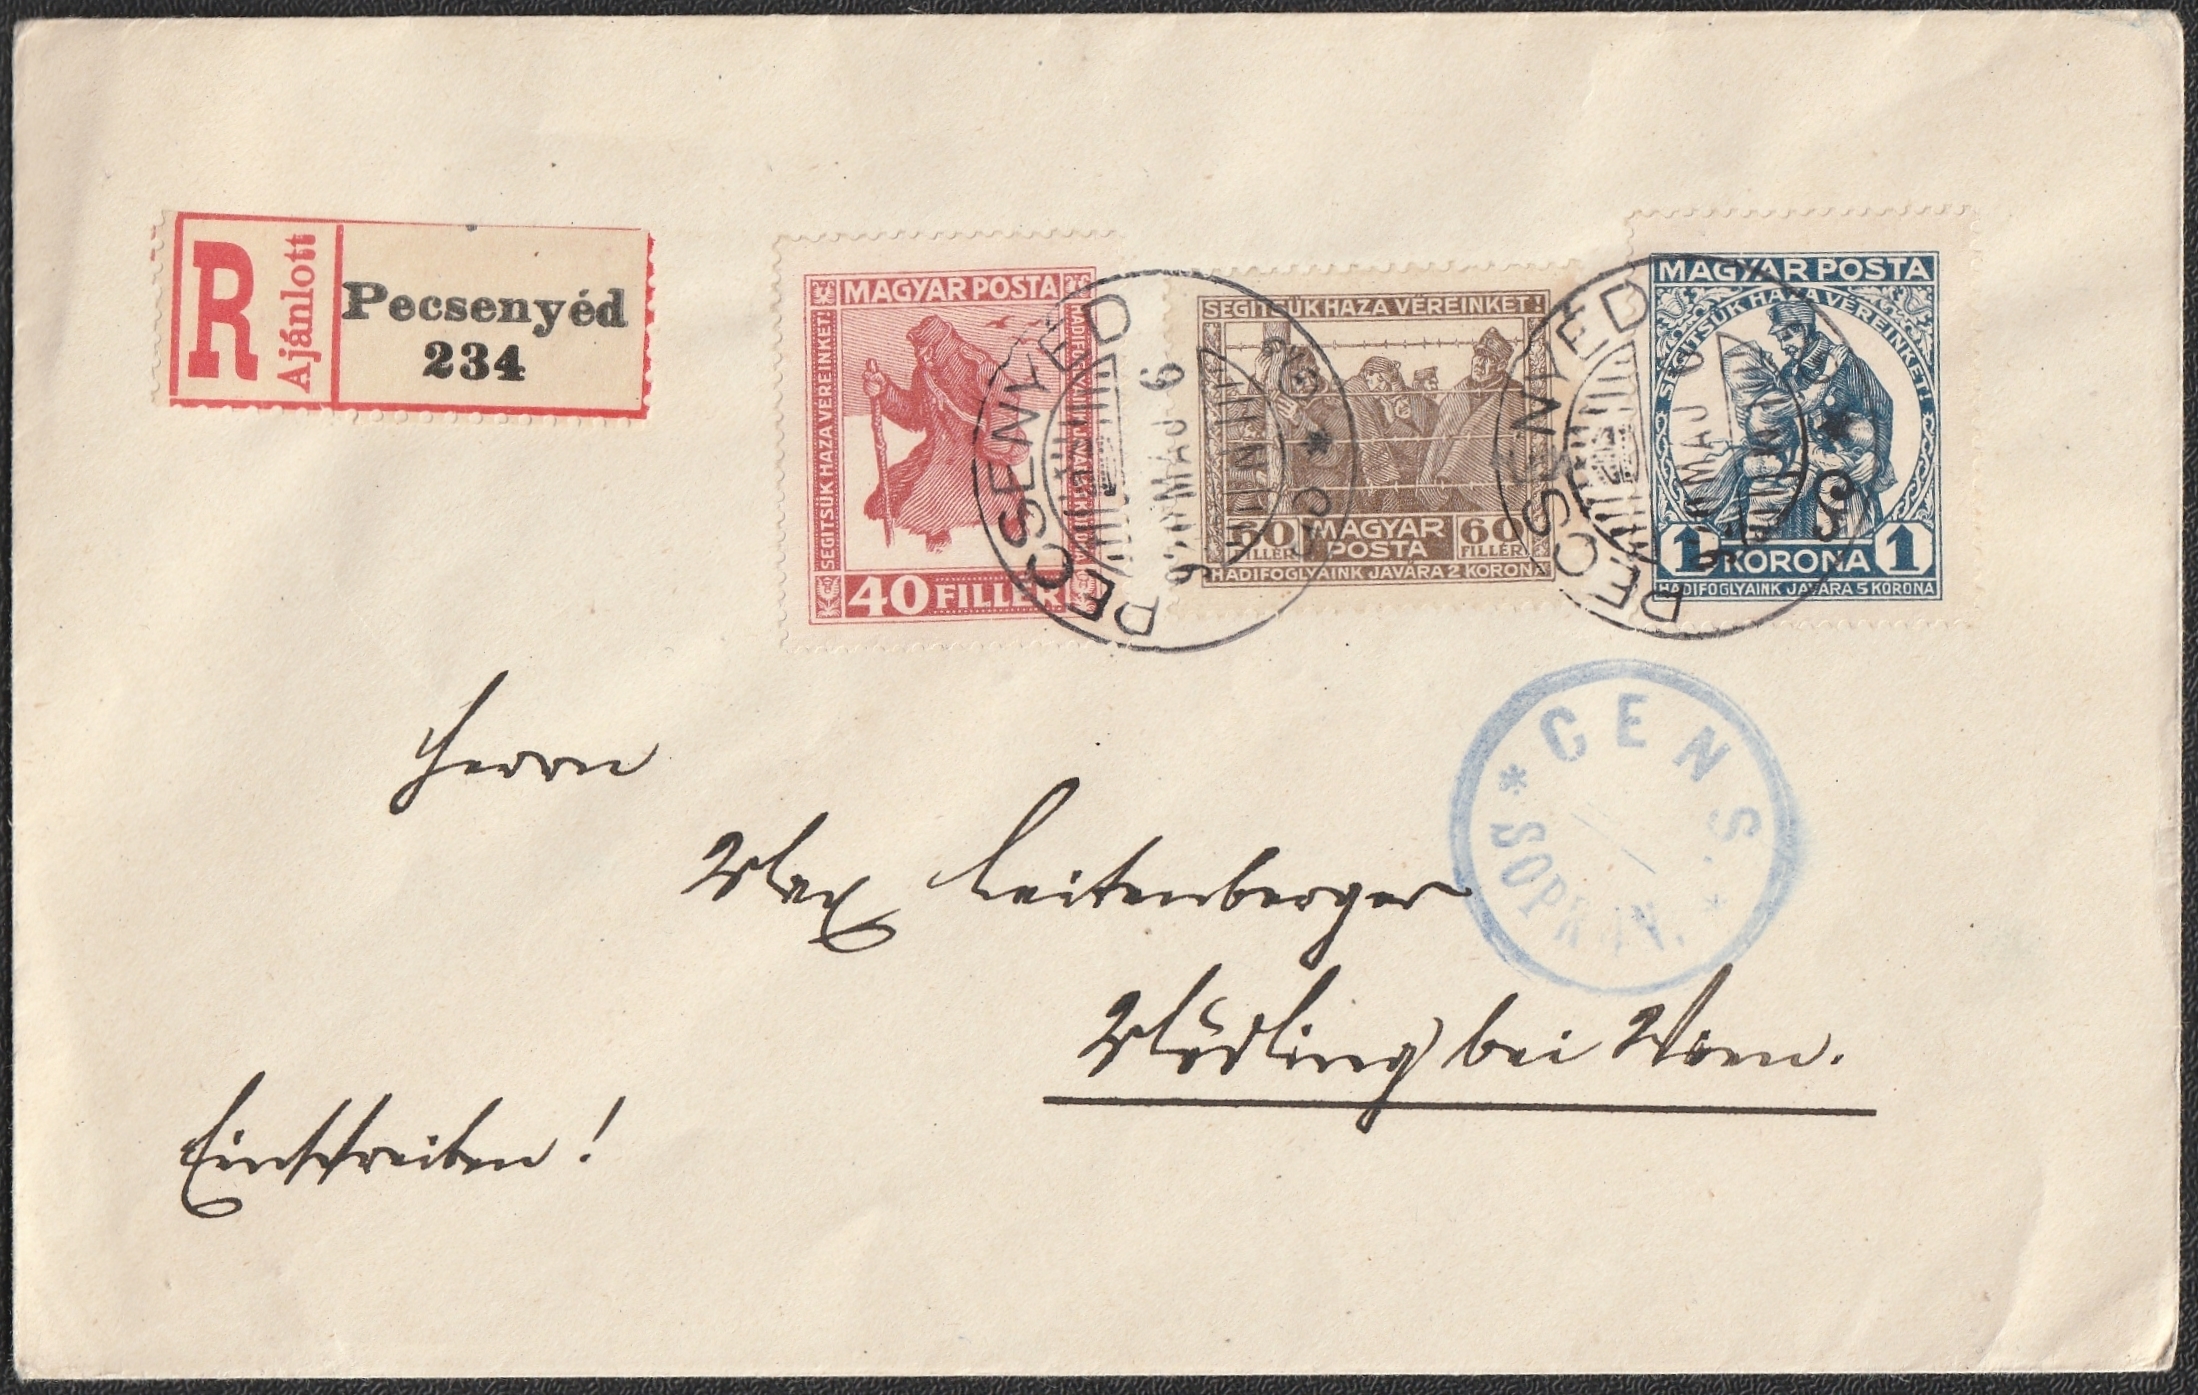 R Ajánlott
Pecsenyéd
234
MAGYAR POSTA
SEGITSÜK HAZA VÉREINKET!
40 FILLÉR
SEGITSÜK HAZA VÉREINKET!
60 FILLÉR MAGYAR POSTA 60 FILLÉR
HADIFOGLYAINK JAVÁRA 2 KORONA
MAGYAR POSTA
SEGITSÜK HAZA VÉREINKET!
1 KORONA 1
HADIFOGLYAINK JAVÁRA 5 KORONA
PECSENYÉD
920 MÁJ 6
PECSENYÉD
MÁJ 6
* CENS.
SOPRON. *
Herrn
Max Leitenberger
Mödling bei Wien.
Einschreiben!